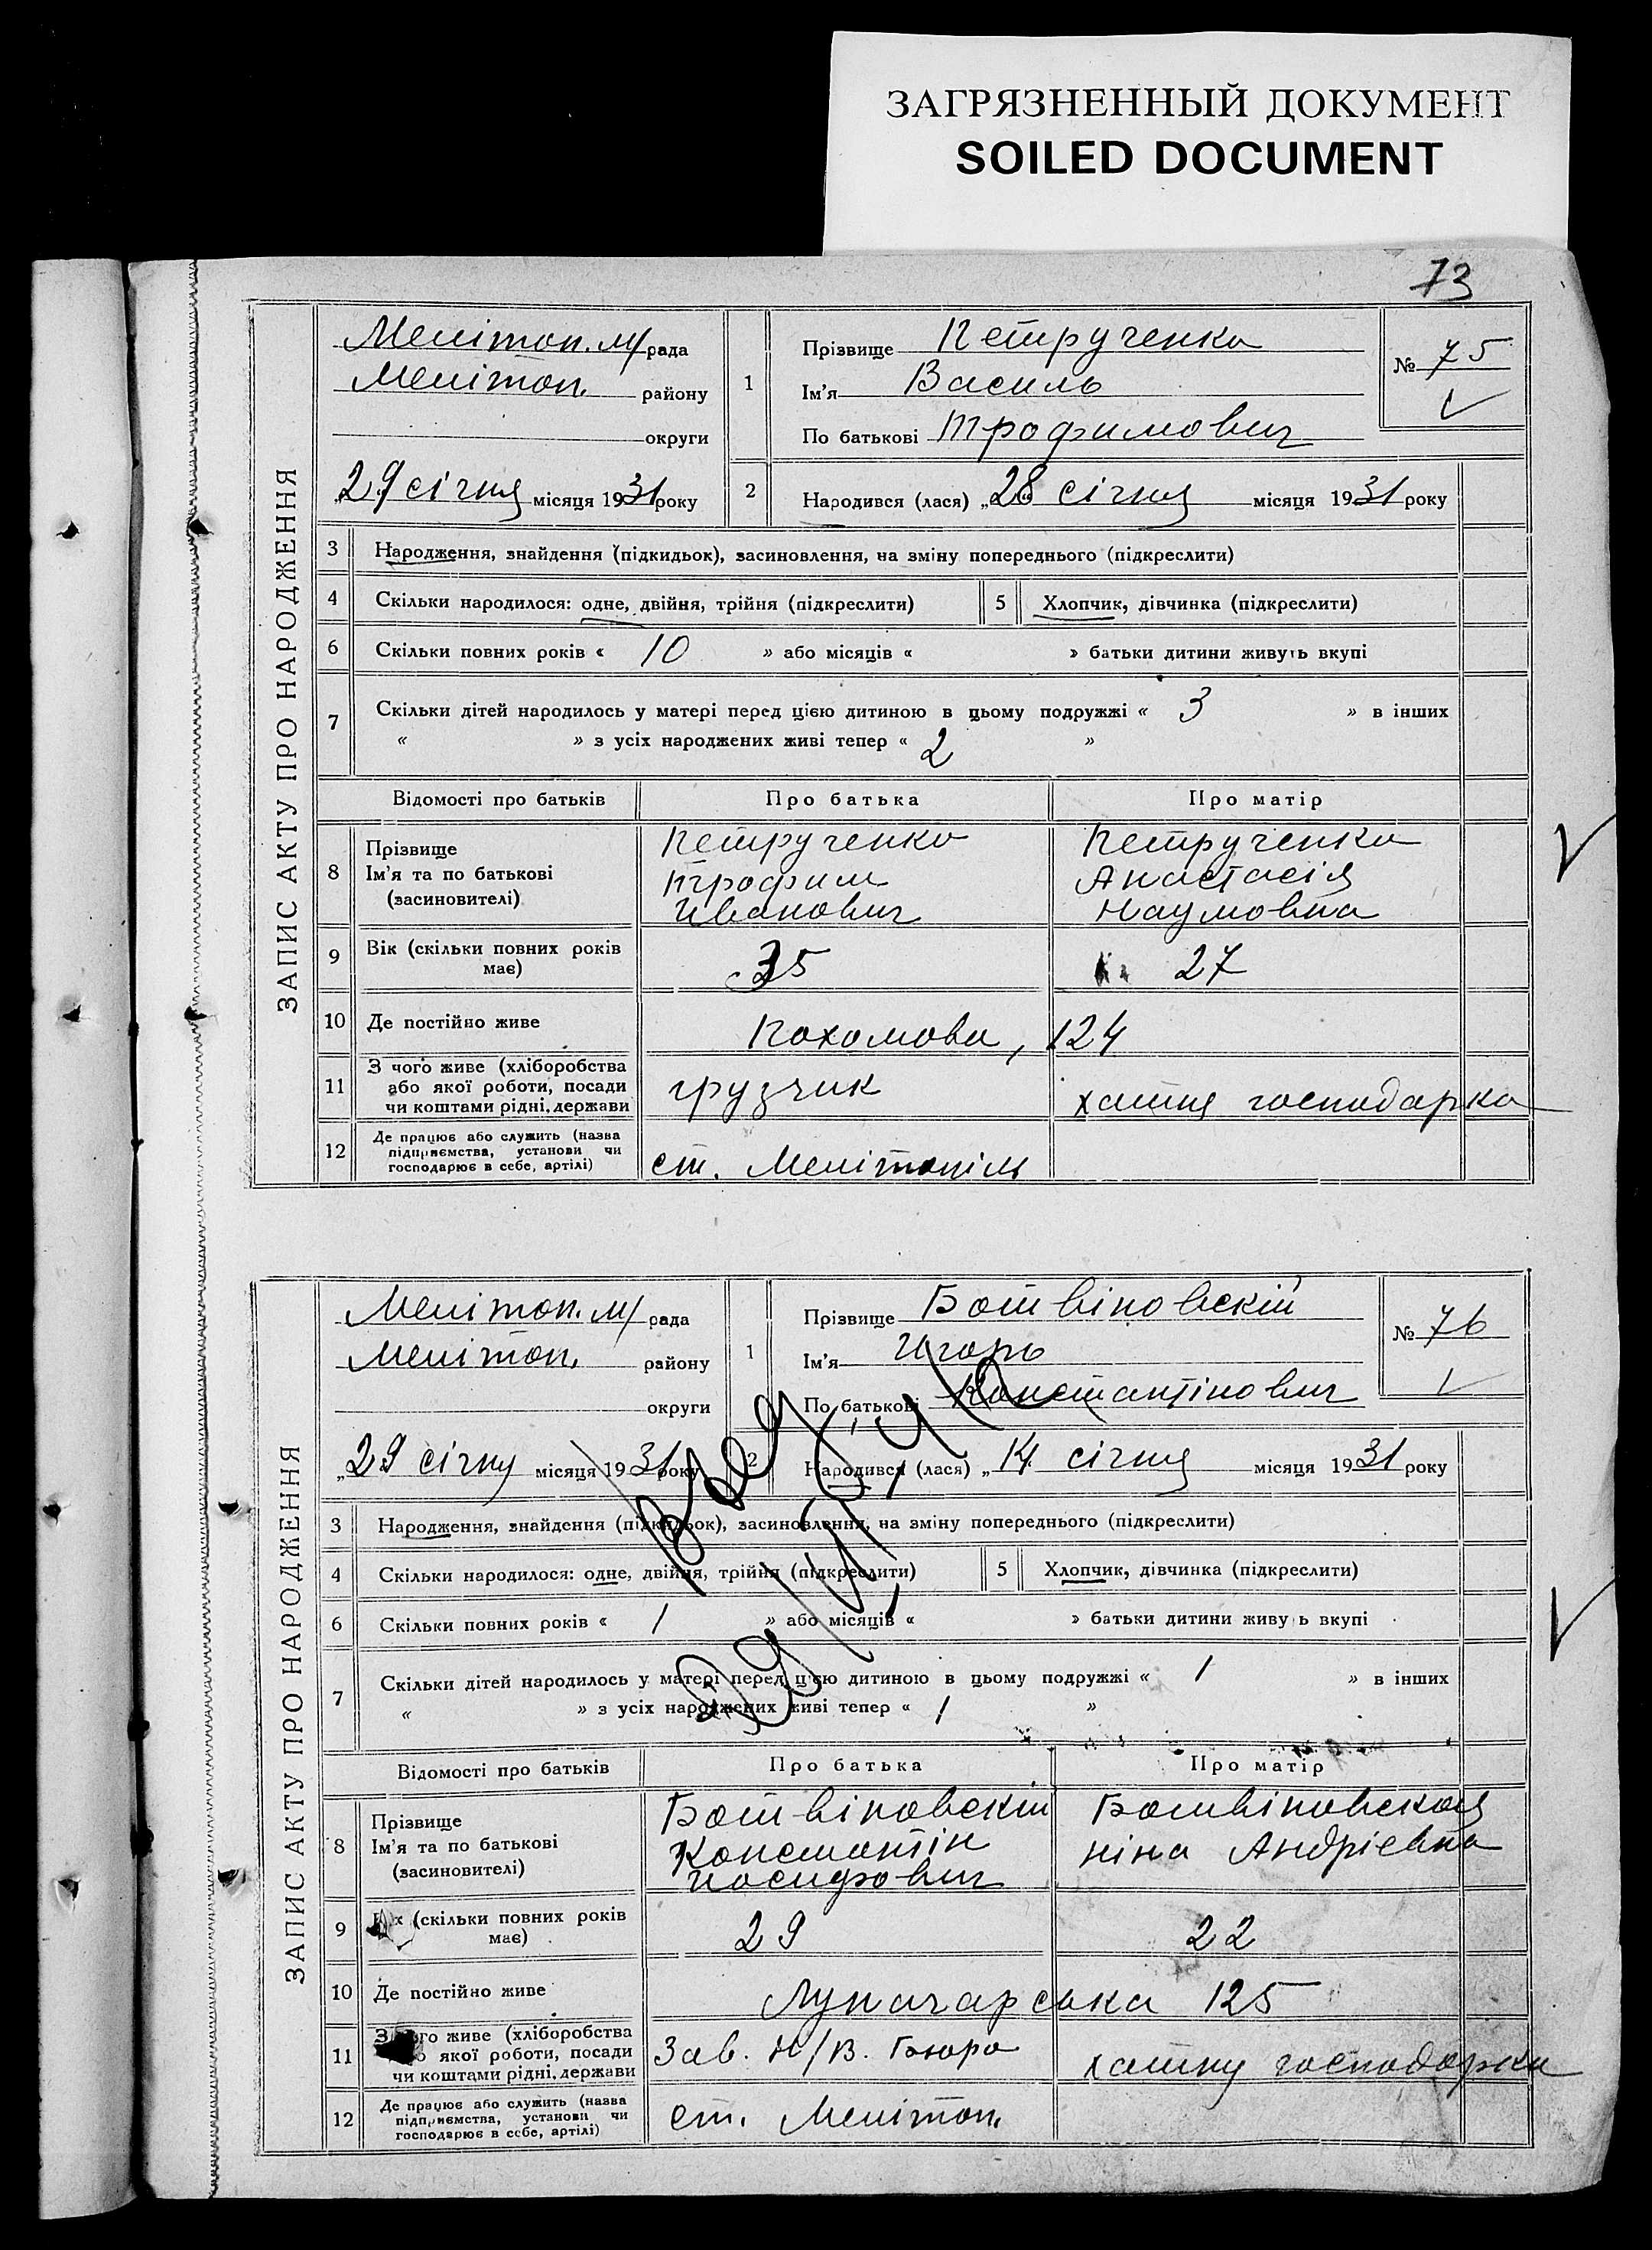 ЗАГРЯЗНЕННЫЙ ДОКУМЕНТ
SOILED DOCUMENT
73
ЗАПИС АКТУ ПРО НАРОДЖЕННЯ
Мелітоп. м/рада
Мелітоп. району
округи
„29 січня місяця 1931 року
1
Прізвище Петрученко
Ім'я Василь
По батькові Трофимович
№ 75
2 Народився (лася) „28 січня місяця 1931 року
3 Народження, знайдення (підкидьок), засиновлення, на зміну попереднього (підкреслити)
4 Скільки народилося: одне, двійня, трійня (підкреслити) 5 Хлопчик, дівчинка (підкреслити)
6 Скільки повних років « 10 » або місяців « » батьки дитини живуть вкупі
7 Скільки дітей народилось у матері перед цією дитиною в цьому подружжі « 3 » в інших
« » з усіх народжених живі тепер « 2 »
Відомості про батьків Про батька Про матір
8 Прізвище Ім'я та по батькові (засновителі)
Петрученко Трофим Иванович
Петрученко Анастасія Наумовна
9 Вік (скільки повних років має) 35 27
10 Де постійно живе Похомова, 124
11 З чого живе (хліборобства або якої роботи, посади чи коштами рідні, держави
грузчик хатня господарка
12 Де працює або служить (назва підприємства, установи чи господарює в себе, артілі)
ст. Мелітопіль
ЗАПИС АКТУ ПРО НАРОДЖЕННЯ
Мелітоп. м/рада
Мелітоп. району
округи
„29 січня місяця 1931 року
1
Прізвище Ботвіновскій
Ім'я Игорь
По батькові Константінович
№ 76
2 Народився (лася) „14 січня місяця 1931 року
3 Народження, знайдення (підкидьок), засиновлення, на зміну попереднього (підкреслити)
4 Скільки народилося: одне, двійня, трійня (підкреслити) 5 Хлопчик, дівчинка (підкреслити)
6 Скільки повних років « 1 » або місяців « » батьки дитини живу ь вкупі
7 Скільки дітей народилось у матері перед цією дитиною в цьому подружжі « 1 » в інших
« » з усіх народжених живі тепер « 1 »
Відомості про батьків Про батька Про матір
8 Прізвище Ім'я та по батькові (засиновителі)
Ботвіновскій Константін Иосифович
Ботвіновская Ніна Андріевна
9 (скільки повних років має) 29 22
10 Де постійно живе Луначарська 125
11 живе (хліборобства якої роботи, посади чи коштами рідні, держави
Зав. Н/В. Бюро хатню господарка
12 Де працює або служить (назва підприємства, установи чи господарює в себе, артілі)
ст. Мелітоп.